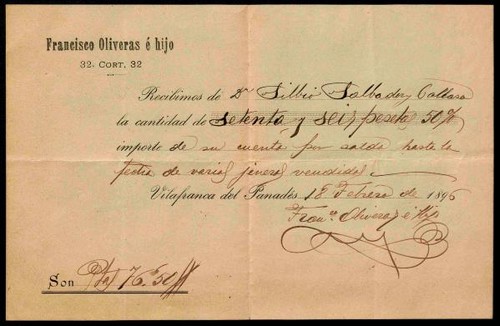 Francisco Oliveras é hijo
32, CORT, 32
Recibimos de Dn Silbio Salbador y Callasa
la cantidad de Setenta y Seis pesetas 50%
importe de su cuenta por saldo hasta la
fecha de varios jeneros vendidos.
Vilafranca del Panadés 18 Febrero de 1896
Franco. Oliveras é Hijo
Son Ptas 76'50